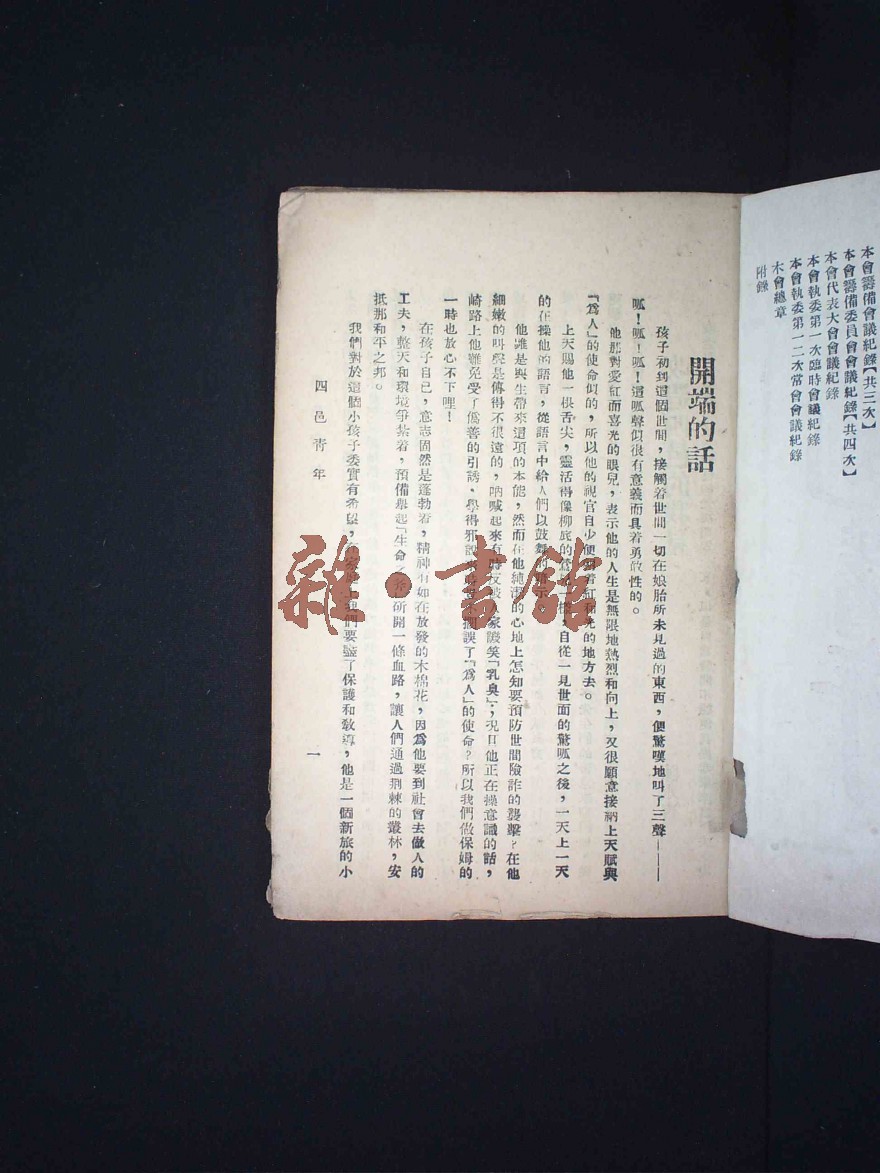 本會籌備會議紀錄【共三次】
本會籌備委員會會議紀錄【共四次】
本會代表大會會議紀錄
本會執委第一次臨時會議紀錄
本會執委第一二次常會會議紀錄
本會總章
附錄
開端的話
孩子初到這個世間，接觸着世間一切在娘胎所未見過的東西，便驚嘆地叫了三聲——
呱！呱！呱！這呱聲似很有意義而具着勇敢性的。
他那對愛紅而喜光的眼兒，表示他的人生是無限地熱烈和向上，又很願意接納上天賦與
「為人」的使命似的，所以他的視官自少便朝着紅和光的地方去。
上天賜他一根舌尖，靈活得像柳底的鶯兒一樣，自從一見世面的驚呱之後，一天上一天
的在操他的語言，從語言中給人們以鼓舞的 示。
他雖是與生帶來這項的本能，然而在他純潔的心地上怎知要預防世間險詐的襲擊？在他
細嫩的叫 是傳得不很遠的，吶喊起來有時反被人家譏笑「乳臭」；况且他正在操意識的話，
崎路上他難免受了僞善的引誘，學得邪說來 擱誤了「為人」的使命？所以我們做保姆的
一時也放心不下哩！
在孩子自已，意志固然是蓬勃着，精神有如在放發的木棉花，因為他要到社會去做人的
工夫，整天和環境爭紥着，預備舉起「生命之斧」斫開一條血路，讓人們通過荆棘的叢林，安
抵那和平之邦。
我們對於這個小孩子委實有希望， 我們要盡了保護和敎導，他是一個新旅的小
四邑靑年
一
雜·書館